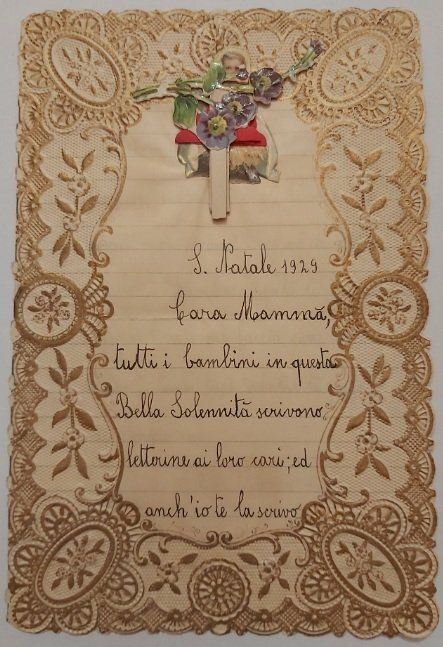 S. Natale 1929
Cara Mammà,
tutti i bambini in questa
Bella Solennità scrivono,
letterine ai loro cari; ed
anch'io te la scrivo